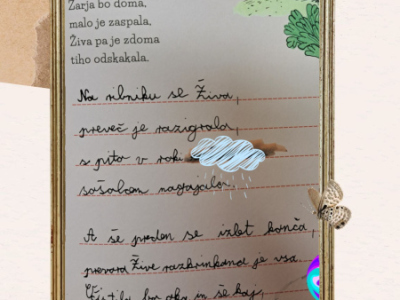 Zarja bo doma,
malo je zaspala,
Živa pa je zdoma
tiho odskakala.
Na ribniku se Živa,
preveč je razigrala,
s pito v roki
sošolcem nagajala.
A še preden se izlet konča,
prevara Žive razkrinkana je vsa.
in še kaj,